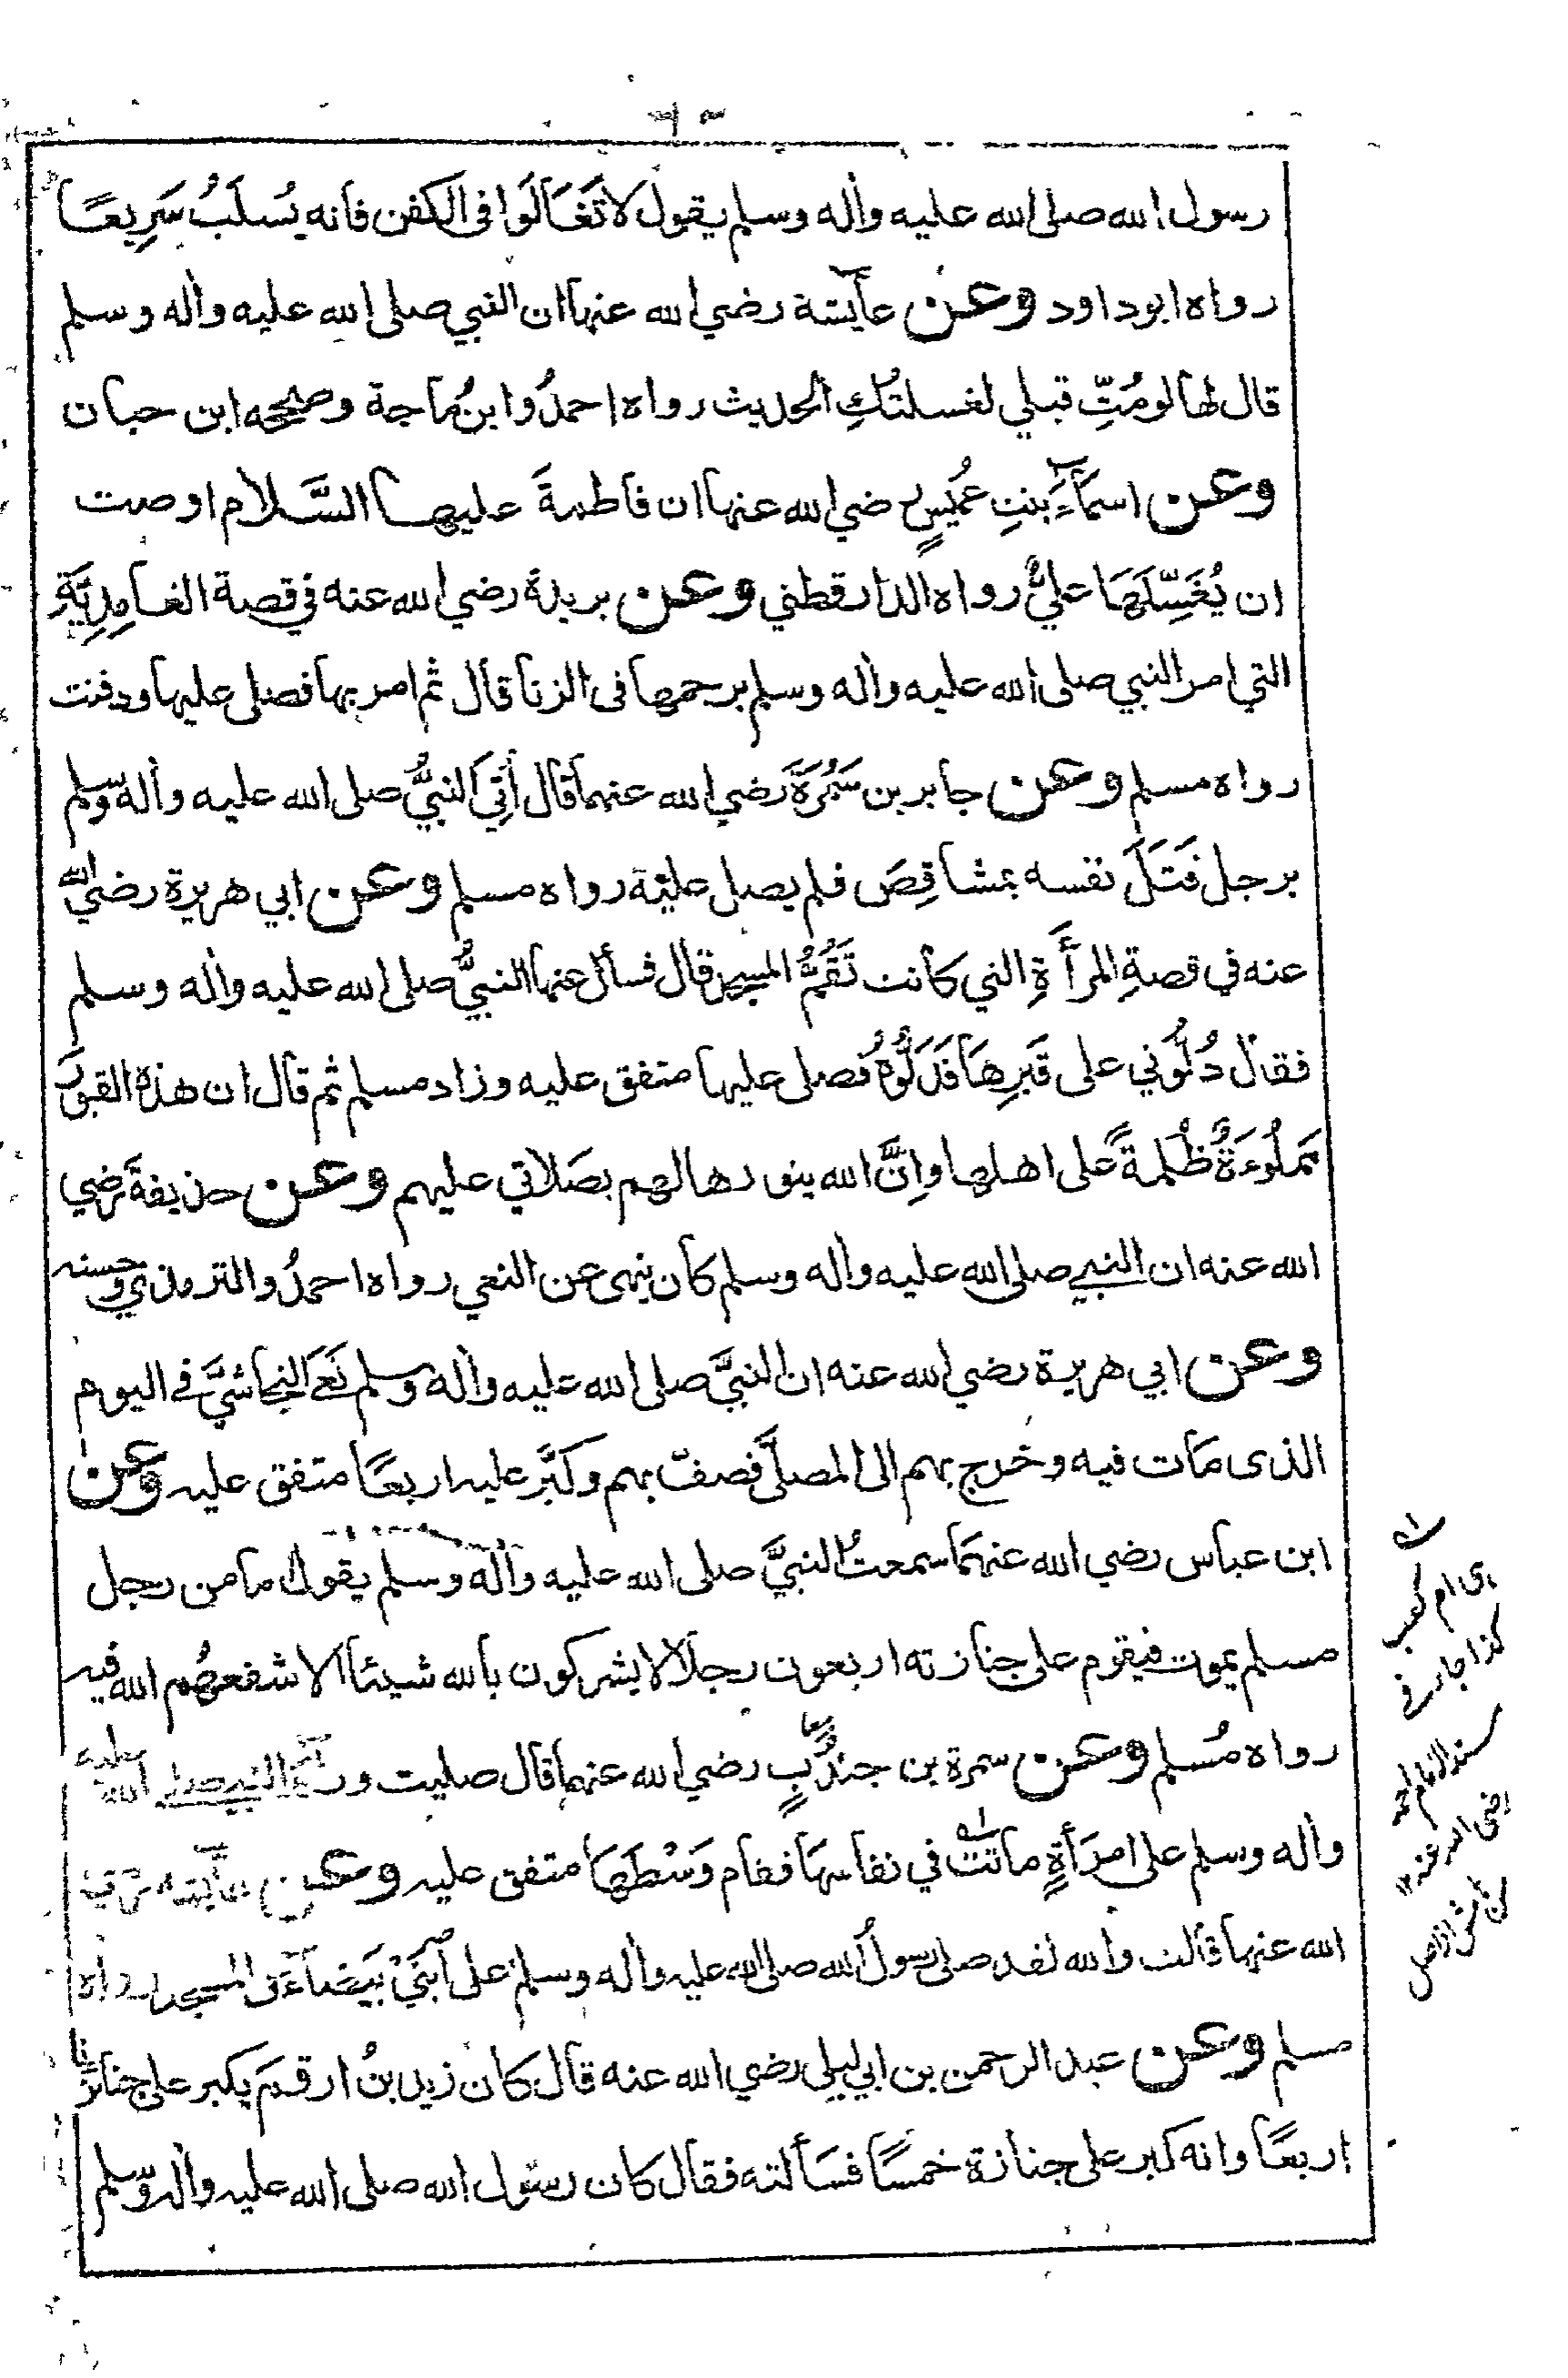 رسول الله صلى الله عليه وأله وسلم يقول لا تَغَالَوا فى الكفن فانه يُسلَبُ سَرِيعًا
رواه ابو داود وعن عايشة رضي الله عنها ان النبي صلى الله عليه وأله وسلم
قال لها لو مُتِّ قبلي لغسلتُكِ الحديث رواه احمدُ وابنُ ماجة وصححه ابن حبان
وعن اسمآءَ بنتِ عُمَيسٍ رضي الله عنها ان فاطمةَ عليها السَّلام اوصت
ان يُغَسِّلَهَا عليٌّ رواه الدارقطني وعن بريدة رضي الله عنه في قصة الغامِدِيَّةِ
التي امر النبي صلى الله عليه وأله وسلم برجمها فى الزنا قال ثم امر بها فصلى عليها ودفنت
رواه مسلم وعن جابر بن سَمُرَةَ رضي الله عنهما قال أُتِيَ النبيُّ صلى الله عليه وأله وسلم
برجل قَتَلَ نفسه بمشاقِصَ فلم يصل عليه رواه مسلم وعن ابي هريرة رضي الله
عنه في قصةِ المرأَةِ التي كانت تَقُمُّ المسجد قال فسأل عنها النبيُّ صلى الله عليه وأله وسلم
فقال دُلُّوني على قَبرِهَا فَدَلُّوهُ فصلى عليها متفق عليه وزاد مسلم ثم قال ان هذه القبورَ
مملُوءَةٌ ظُلمةً على اهلها وإنَّ الله ينورها لهم بصَلاتي عليهم وعن حذيفةَ رضي
الله عنه ان النبي صلى الله عليه وأله وسلم كان ينهى عن النعي رواه احمدُ والترمذي وحسنه
وعن ابي هريرة رضي الله عنه ان النبيَّ صلى الله عليه وأله وسلم نَعَى النجاشيَّ في اليوم
الذى مات فيه وخرج بهم الى المصلَّى فصفّ بهم وكبَّر عليه اربعًا متفق عليه وعن
ابن عباس رضي الله عنهما سمعتُ النبيَّ صلى الله عليه وأله وسلم يقول ما من رجل
مسلم يموت فيقوم على جنازته اربعون رجلاً لا يشركون بالله شيئاً الا شفعهُم الله فيه
رواه مُسلم وعن سمرة بن جندُبٍ رضي الله عنهما قال صليت ورآءَ النبي صلى الله عليه
وأله وسلم على امرَأةٍ ماتت في نفاسها فقام وَسْطَهَا متفق عليه وعن عايشه رضي
الله عنها قالت والله لقد صلى رسولُ الله صلى الله عليه وأله وسلم على ابنَيْ بَيضآءَ فى المسجد رواه
مسلم وعن عبد الرحمن بن ابي ليلى رضي الله عنه قال كان زيد بنُ ارقم يكبر على جنائزنا
اربعًا وانه كبر على جنازة خمسًا فسألته فقال كان رسول الله صلى الله عليه وأله وسلم
اى ام كعب
كذا جاء في
مسند الامام احمد
رضى الله عنه
من هامش الاصل